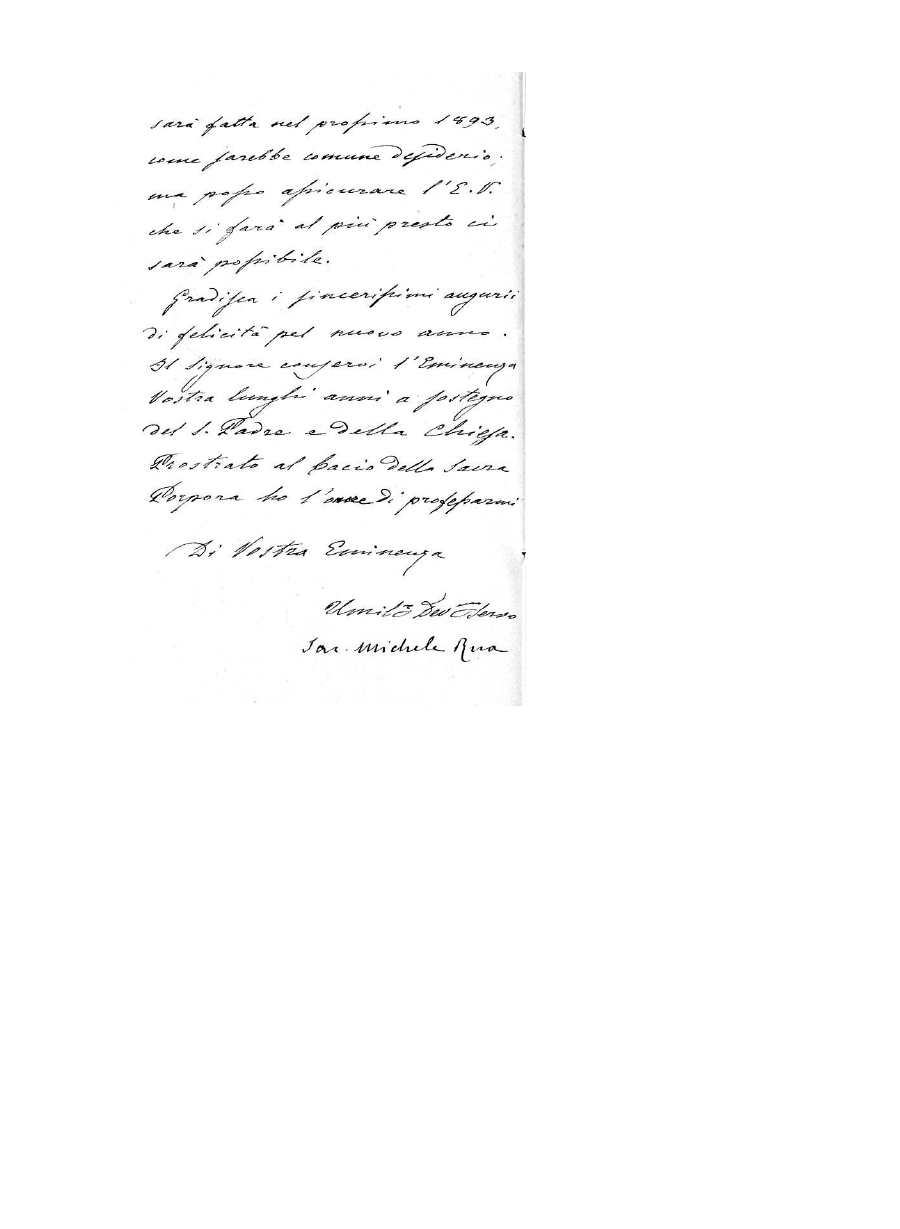 sarà fatta nel prossimo 1893,
come sarebbe comune desiderio;
ma posso assicurare l'E.V.
che si farà al più presto ci
sarà possibile.
Gradisca i sincerissimi augurii
di felicità pel nuovo anno.
Il Signore conservi l'Eminenza
Vostra lunghi anni a sostegno
del S. Padre e della Chiesa.
Prostrato al bacio della Sacra
Porpora ho l'onore di professarmi
Di Vostra Eminenza
Umil.mo Dev.mo Servo
Sac. Michele Rua